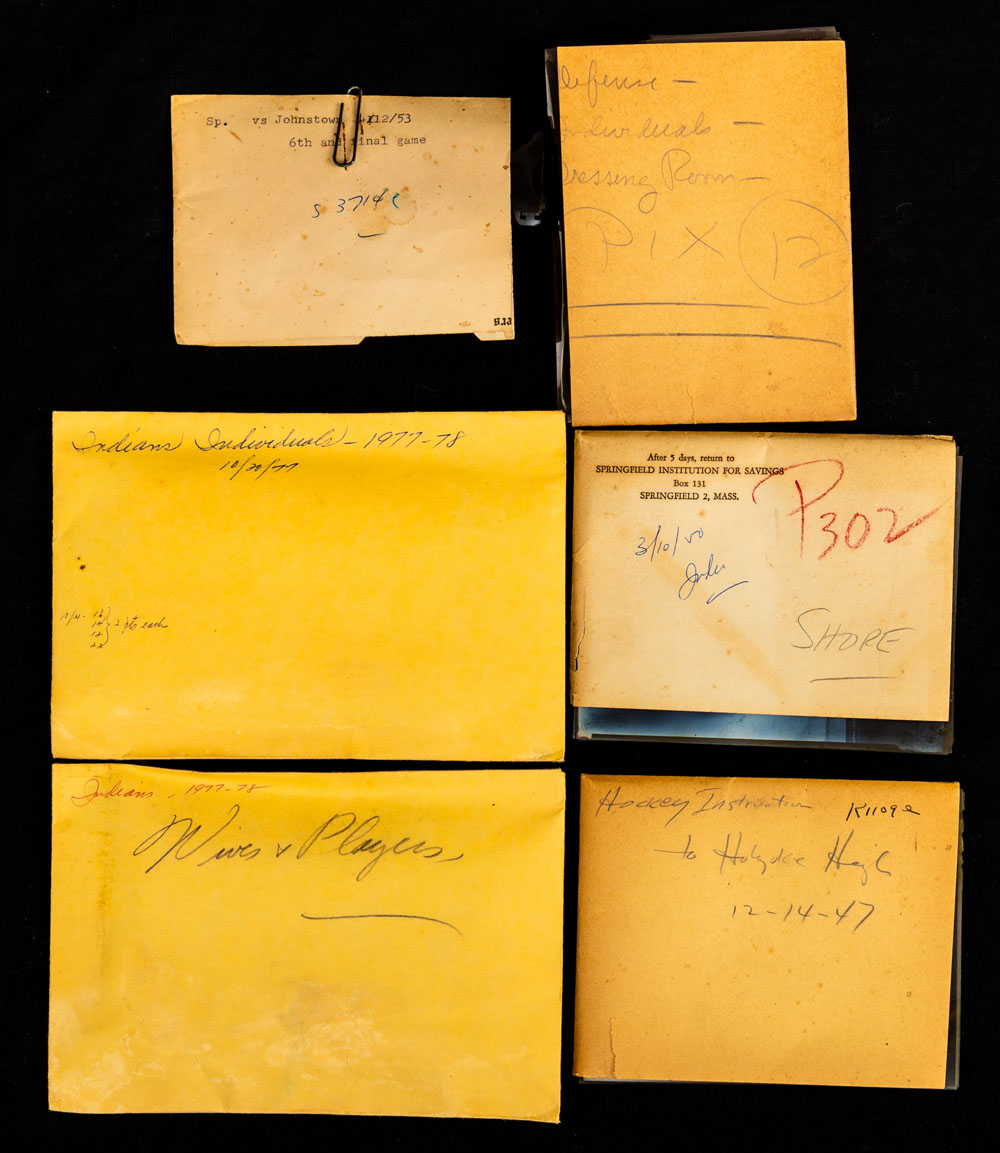 Sp. vs Johnstown 4/12/53
6th and final game
S 3714 e
efense —
dividuals —
Dressing Room —
PIX 12
Indians Individuals - 1977-78
10/20/77
2 pts each
After 5 days, return to
SPRINGFIELD INSTITUTION FOR SAVINGS
Box 131
SPRINGFIELD 2, MASS.
P302
3/10/50
SHORE
Indians - 1977-78
Wives & Players
Hockey Instruction K1109e
to Holyoke High
12-14-47